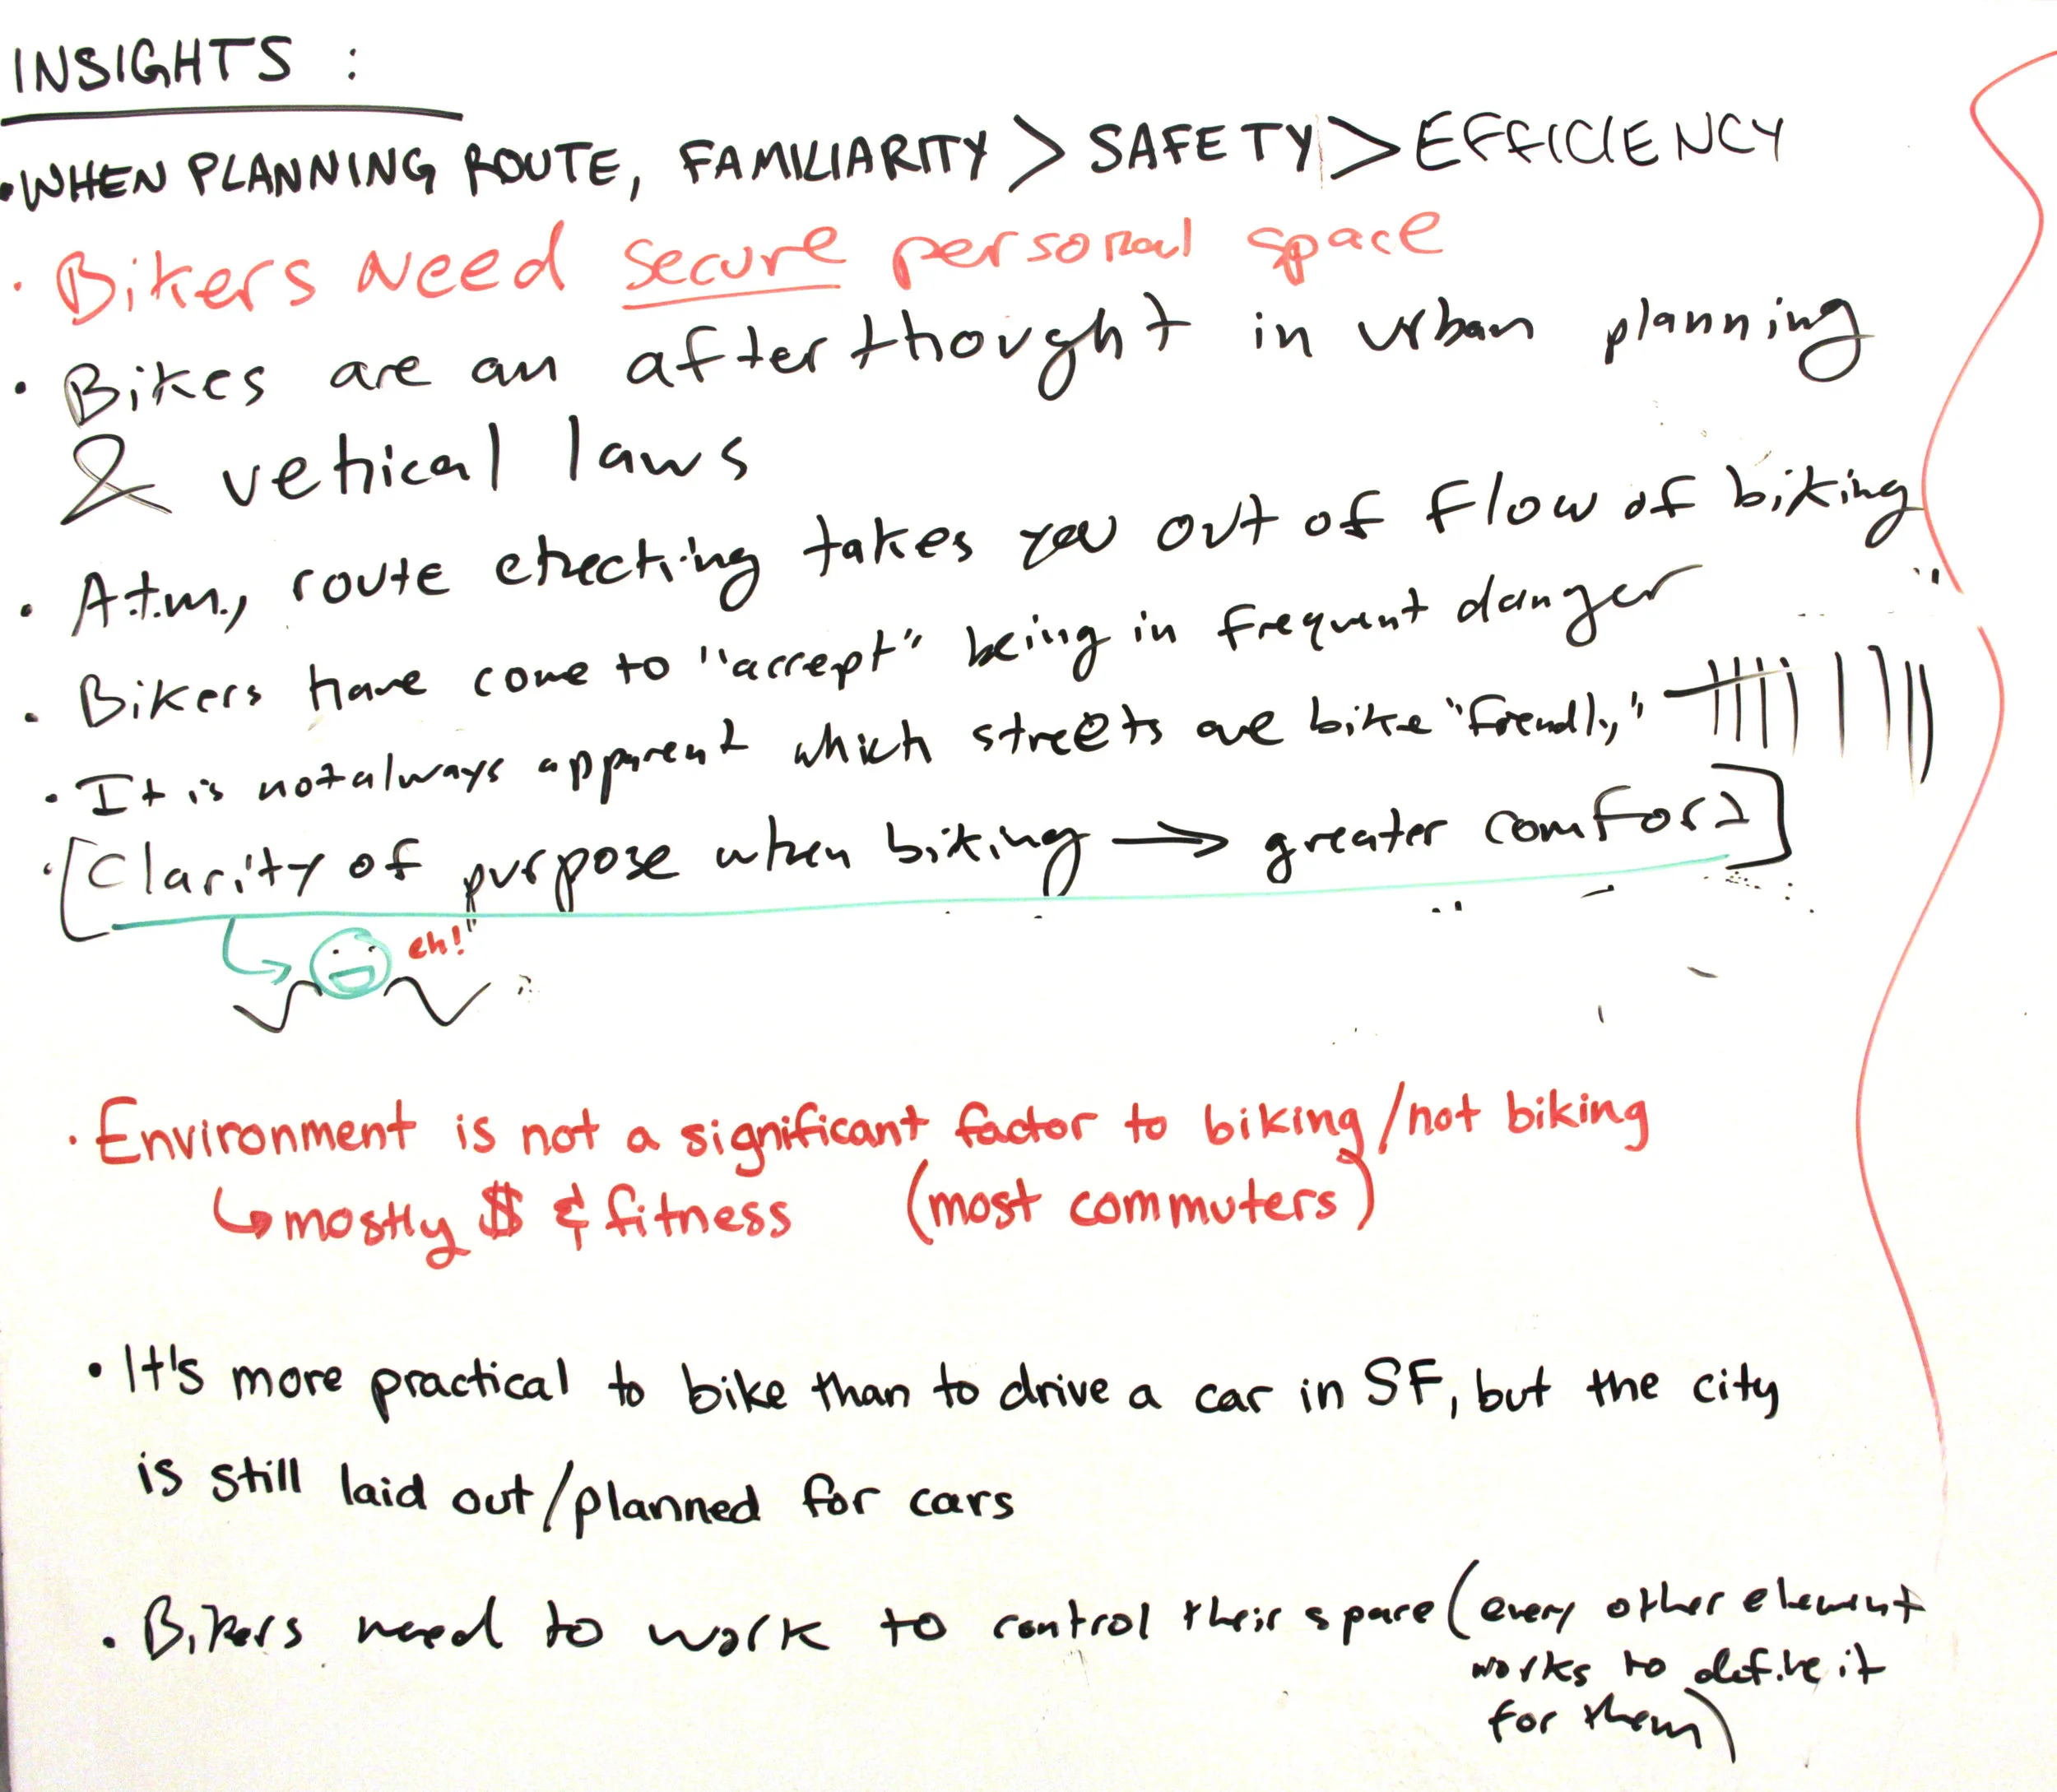 INSIGHTS :
• WHEN PLANNING ROUTE, FAMILIARITY > SAFETY > EFFICIENCY
• Bikers Need secure personal space
• Bikes are an afterthought in urban planning
& vehical laws
• A.t.m., route checking takes you out of flow of biking
• Bikers have come to "accept" being in frequent danger
• It is not always apparent which streets are bike "friendly"
• [Clarity of purpose when biking → greater comfort]
eh!"
• Environment is not a significant factor to biking/not biking
↳ mostly $ & fitness (most commuters)
• It's more practical to bike than to drive a car in SF, but the city
is still laid out/planned for cars
• Bikers need to work to control their space (every other element
works to define it
for them)